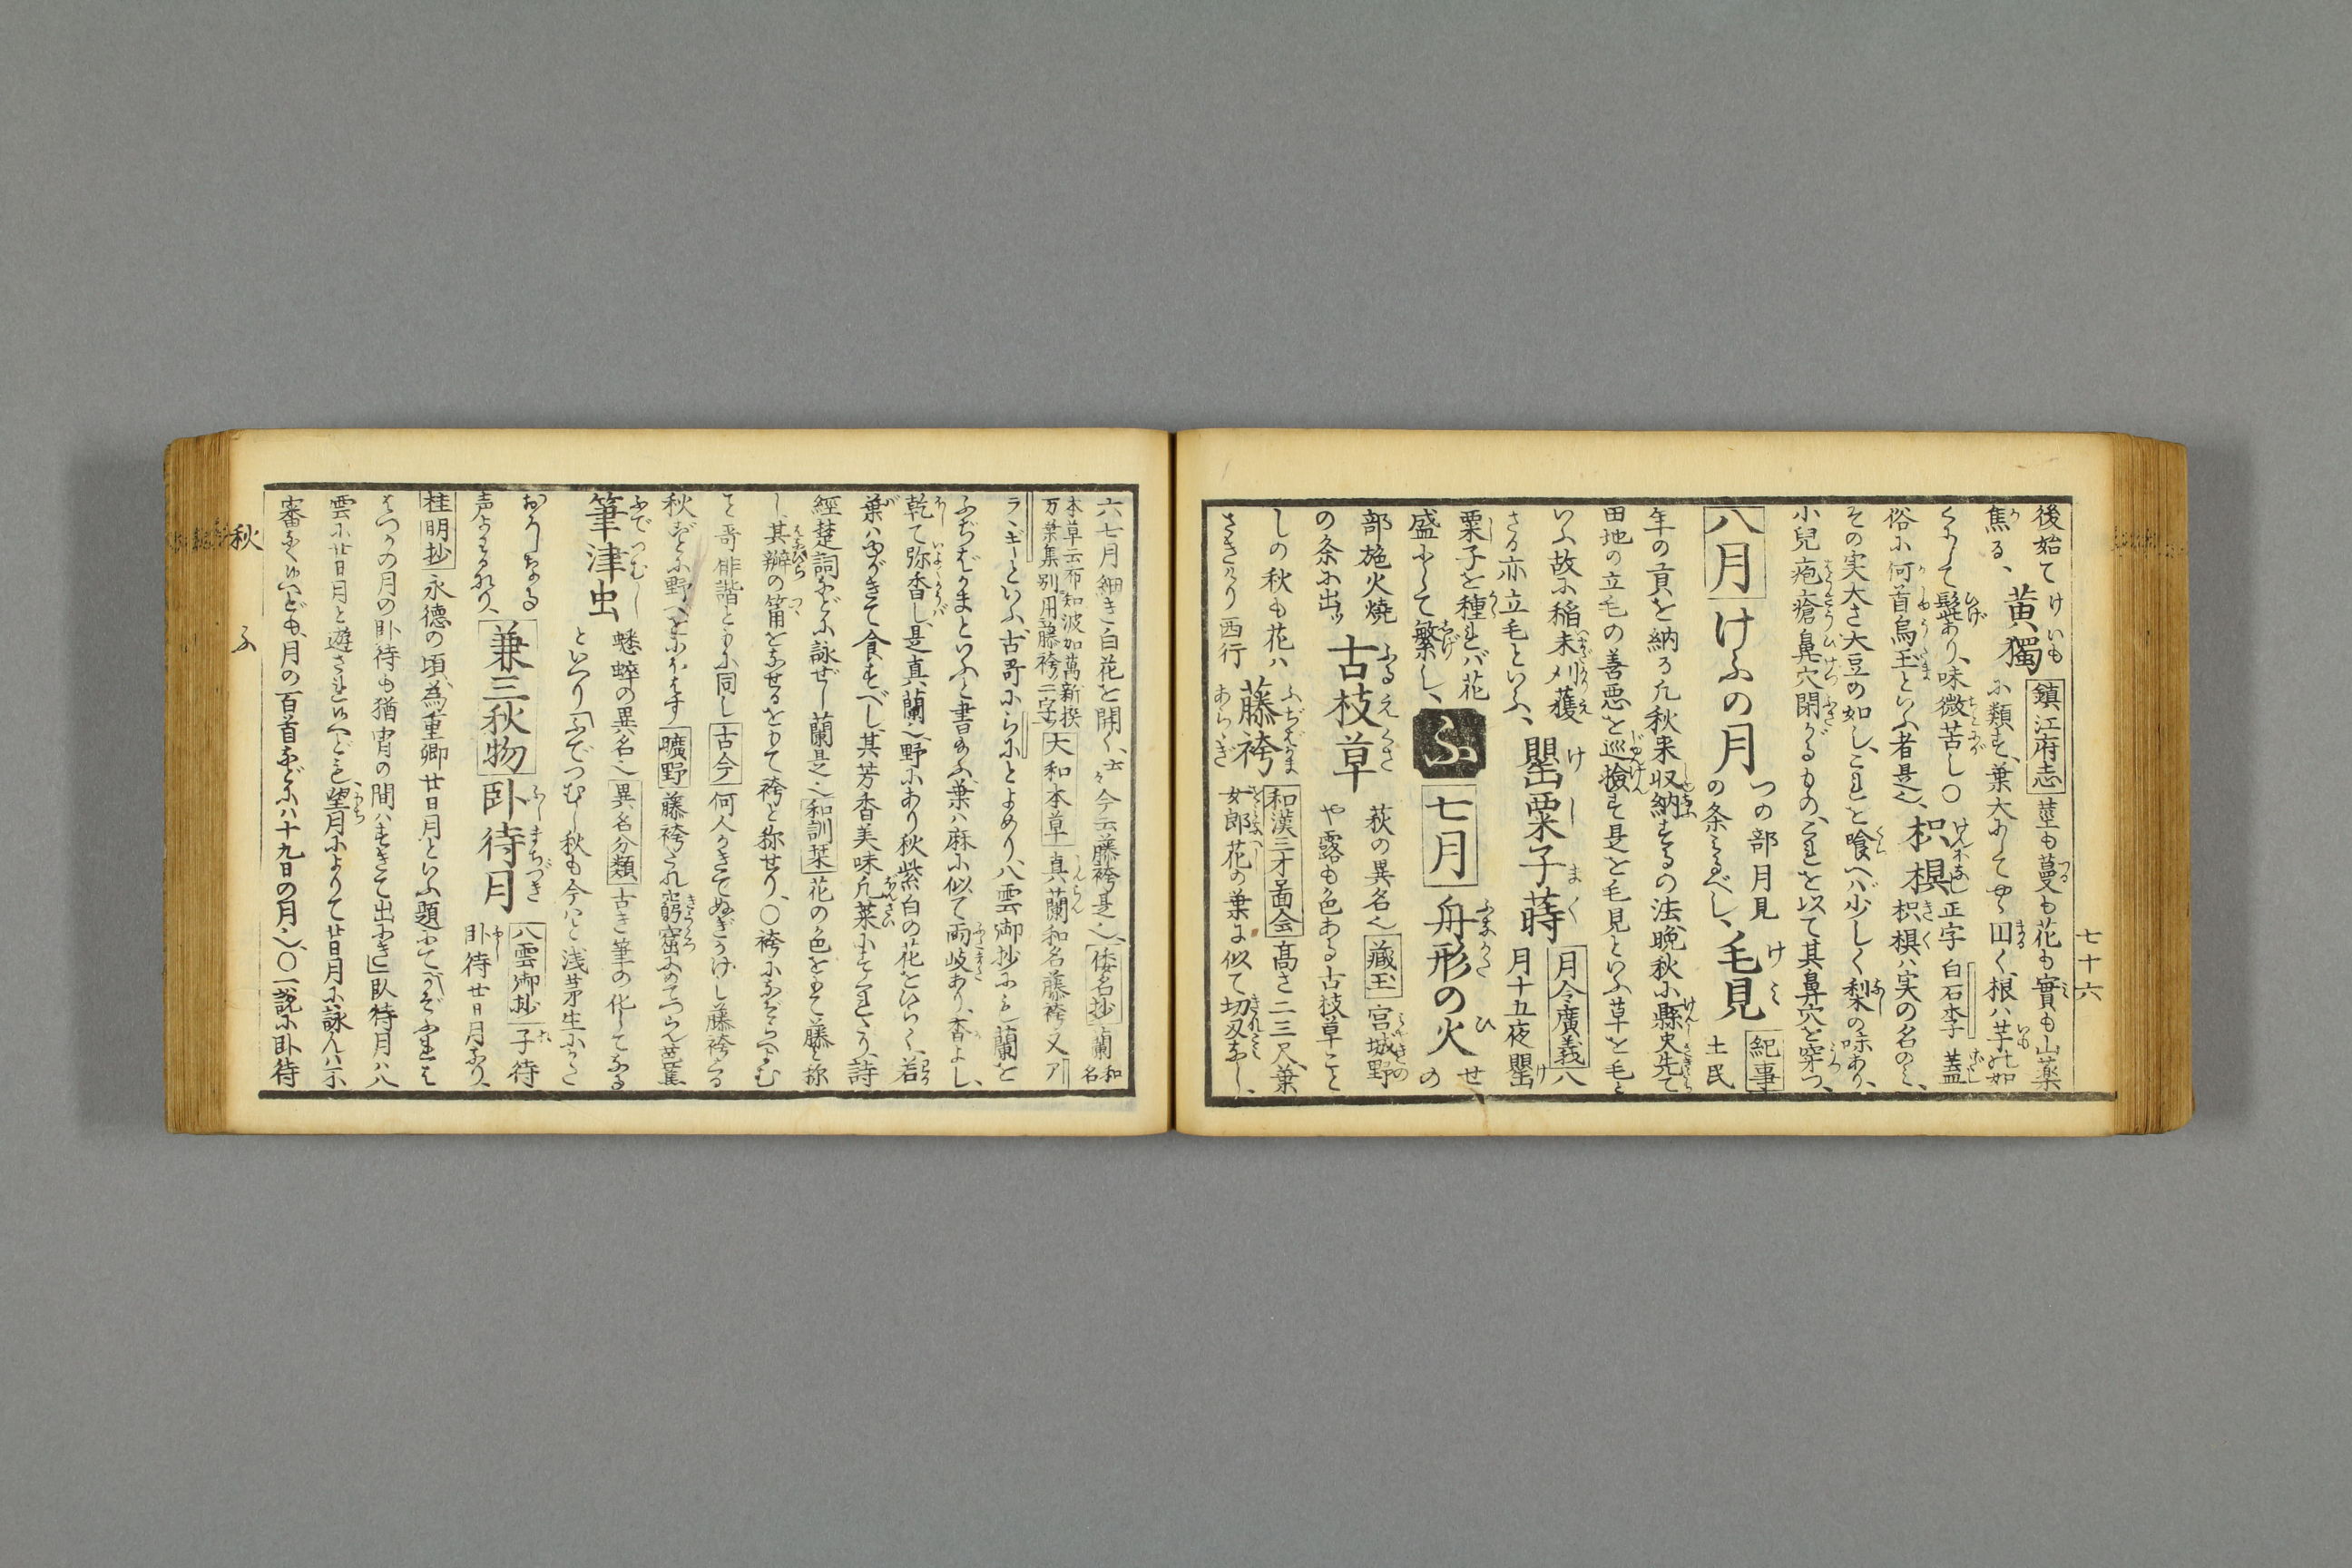 七十六
後始て
焦る、
黄獨
けいも
鎮江府志
茎も蔓も花も實も山薬
に類す、葉大にして
く、根ハ芋の如
くにして髭あり、味微苦し〇
枳椇
けんぽなし
正字 白石本子 蓋
俗に何首烏玉といふ者是也、
枳椇ハ実の名のミ、
その実大さ大豆の如し、これを喰ヘバ少しく梨の味あり、
小兒疱瘡鼻穴閉がるもの、これを以て其鼻穴を穿つ、
八月
けふの月
つの部月見
の条ミるべし、
毛見
けミ
紀事
土民
年の貢を納る凡秋来収納するの法、晩秋に縣吏先て
田地の立毛の善悪を巡撿す是を毛見といふ草を毛と
いふ故に稲未刈獲
さる亦立毛といふ、
罌粟子蒔
けしまく
月令廣義
八
月十五夜罌
粟子を種れバ花
盛にして繁し、
ふ
七月
舟形の火
ふながたのひ
せ
の
部施火燒
の条に出ッ
古枝草
ふるえくさ
萩の異名也
藏玉
宮城野
や露も色ある古枝草こと
しの秋も花ハ
さきけり 西行
藤袴
ふぢばかま
あらゝぎ
和漢三才圖会
高さ二三尺、葉
女郎花の葉に似て切刄なし、
六七月細き白花を開く、云々今云藤袴是也、
倭名抄
蘭 和名
本草云布知波加萬新撰
万葉集別用藤袴二字
大和本草
真蘭和名藤袴又ア
ラヽギーといふ、古哥にらにとよめり、八雲御抄にも蘭を
ふぢばかまといふと書給ふ、葉ハ麻に似て兩岐あり、香よし、
乾て弥香し、是真蘭也野にあり秋紫白の花をひらく、若
葉ハゆがきて食すべし、其芳香美味凡菜にすぐれたり、詩
經楚詞などに詠ぜし蘭是也
和訓栞
花の色をもて藤と称
し、其辦の筩をなせるをもて袴と称せり、〇袴になぞらへよむ
こと哥俳諧ともに同し
古今
何人かきてぬぎかけし藤袴くる
秋ごとに野べをにほはす
曠野
藤袴たれ窮窟にめでつらん芭蕉
筆津虫
ふでつむし
蟋蟀の異名也
異名分類
古き筆の化してなる
といへり「ふでつむし秋も今ハと浅茅生にかた
おろしなる
声よわるなり、
兼三秋物
臥待月
ふしまちづき
八雲御抄
子待
臥待廿日月なり、
桂明抄
永徳の頃為重卿廿日月といふ題にて「かぞふれは
はつかの月の臥待も猶宵の間ハすぎて出にき」臥待月ハ八
雲に廿日月と遊されたれど、望月によりて廿日月に詠んハ不
審なくいへども、月の百首などにハ十九日の月也、〇一説に臥待
秋
ふ